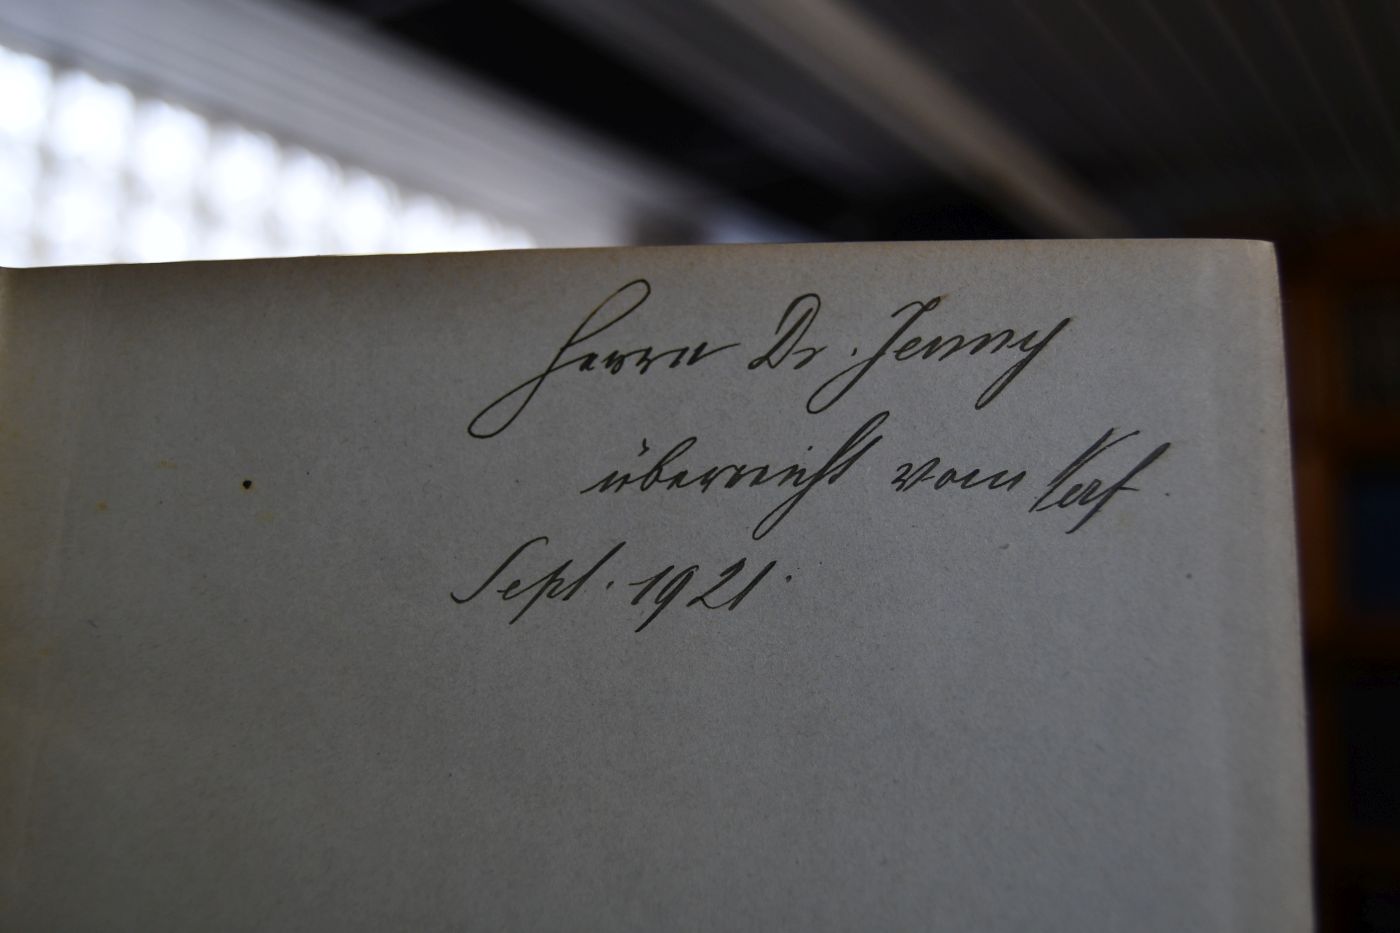 Herrn Dr. Jenny
überreicht vom Verf.
Sept. 1921.